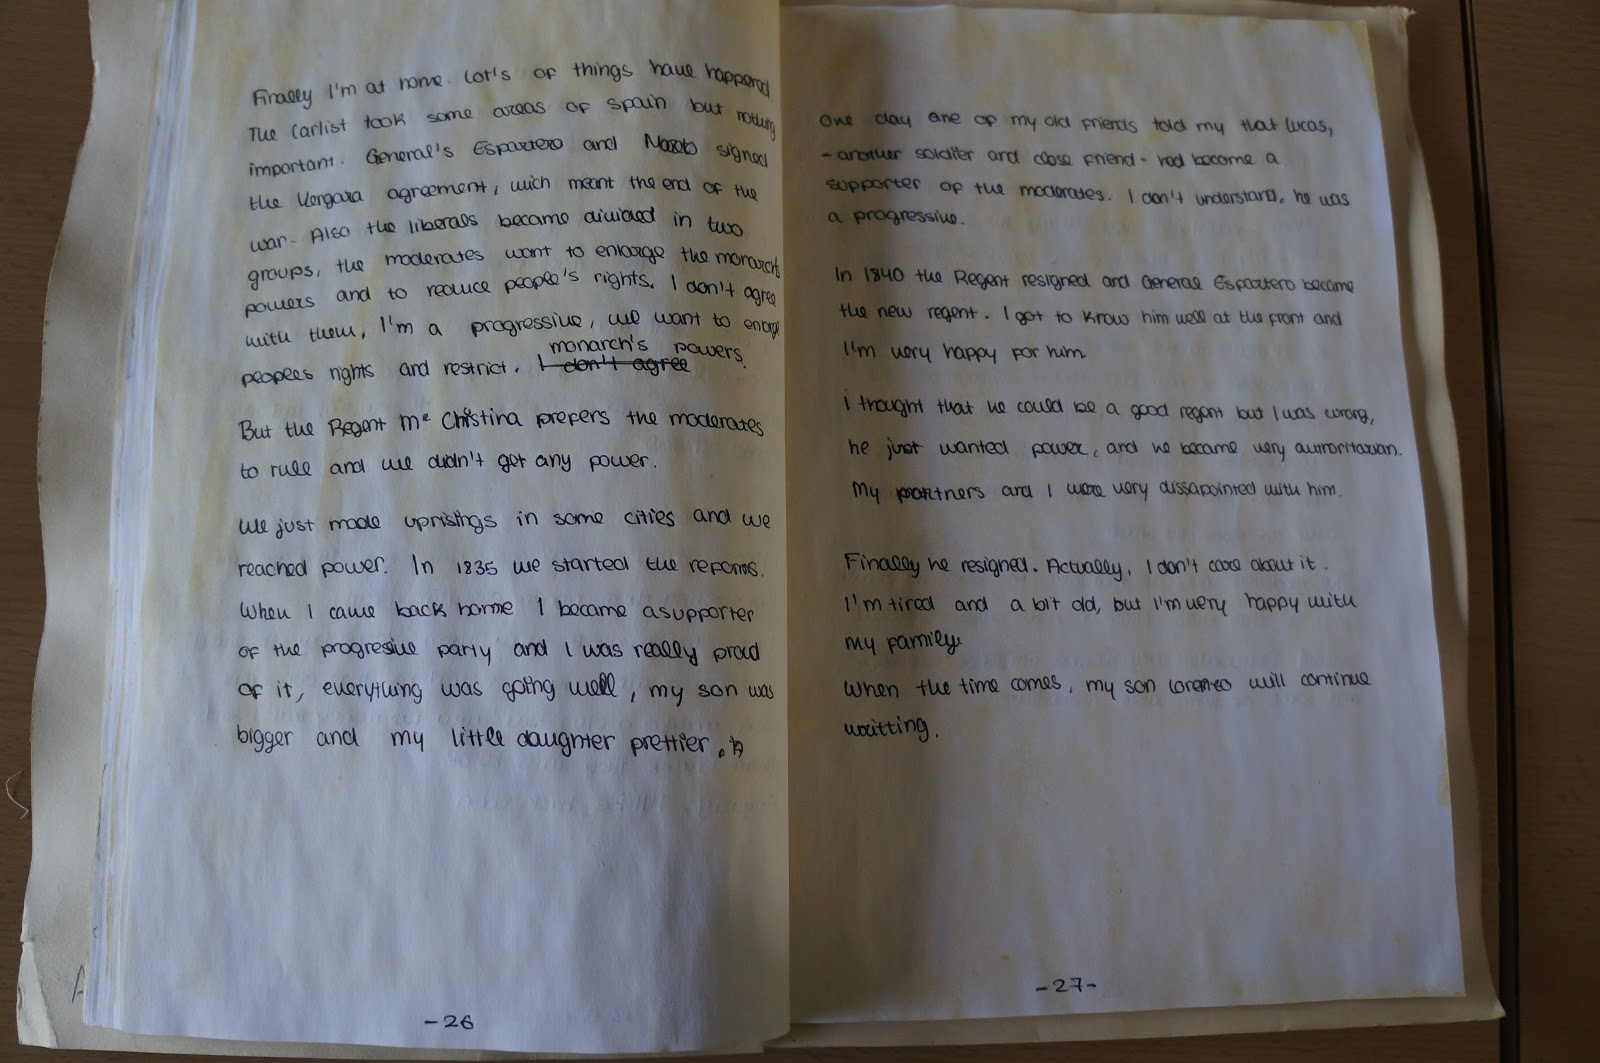 Finally I'm at home. Lot's of things have happened
The Carlist took some areas of Spain but nothing
important. General's Espartero and Maroto signed
the Vergara agreement, wich meant the end of the
war. Also the liberals became divided in two
groups, the moderates want to enlarge the monarch's
powers and to reduce people's rights. I don't agree
with them, I'm a progressive, we want to enlarge
monarch's powers.
peoples rights and restrict. I don't agree
But the Regent Mª Christina prefers the moderates
to rule and we didn't get any power.
We just made uprisings in some cities and we
reached power. In 1835 we started the reforms.
When I came back home I became a supporter
of the progresive party and I was really proud
of it, everything was going well, my son was
bigger and my little daughter prettier.
-26
One day one of my old friends told my that Lucas,
-another soldier and close friend- had become a
supporter of the moderates. I don't understand, he was
a progressive.
In 1840 the Regent resigned and General Espartero became
the new regent. I got to know him well at the front and
I'm very happy for him.
i thought that he could be a good regent but I was wrong,
he just wanted power, and he became very authoritarian.
My partners and I were very dissapointed with him.
Finally he resigned. Actually, I don't care about it.
I'm tired and a bit old, but I'm very happy with
my family.
When the time comes, my son Lorenzo will continue
writting.
-27-